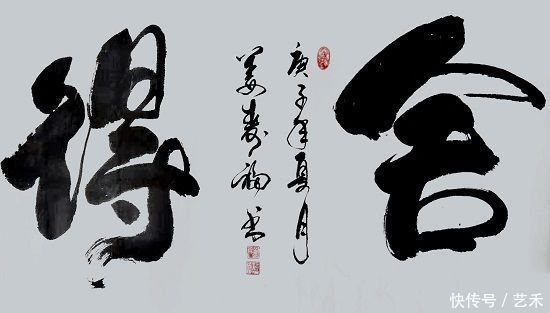 舍
庚子年夏月
姜寿福书
得
快传号／艺禾